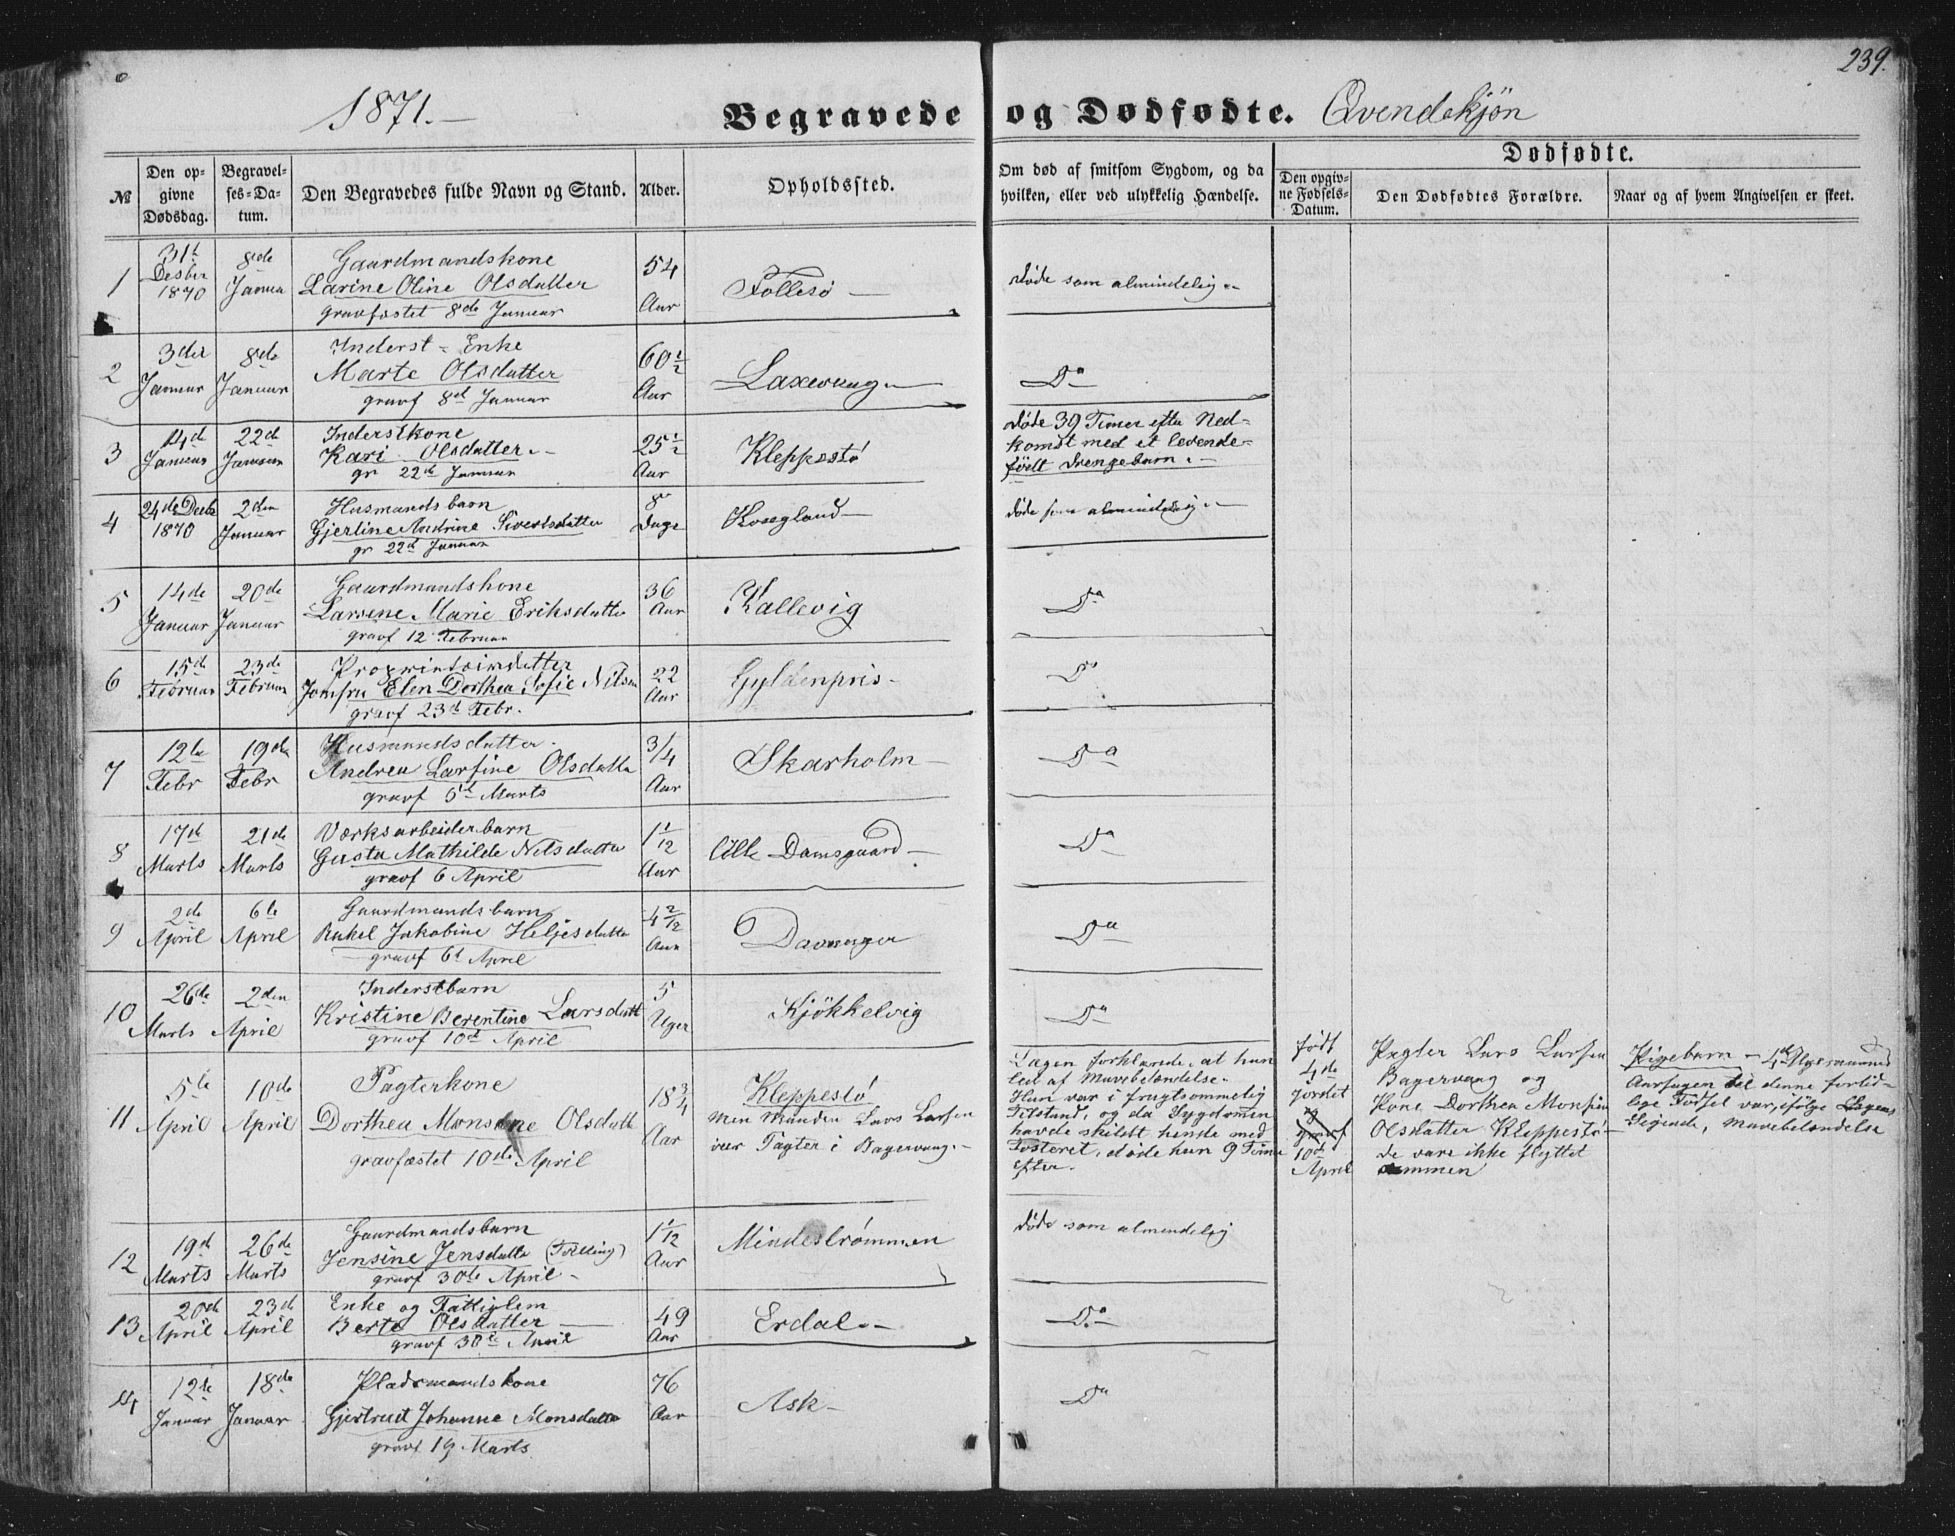 239.
1871.—
Begravede og Dødfødte. Qvendekjön
№
Den opgivne Dødsdag.
Begravelses-Datum.
Den Begravedes fulde Navn og Stand.
Alder.
Opholdssted.
Om død af smitsom Sygdom, og da hvilken, eller ved ulykkelig Hændelse.
Dødfødte.
Den opgivne Fødsels-Datum.
Den Dødfødtes Forældre.
Naar og af hvem Angivelsen er skeet.
1
31te Desbr 1870
8de Januar
Gaardmandskone
Larine Oline Olsdatter
gravfæstet 8de Januar
54 Aar
Follesö —
döde som almindelig —
2
3die Januar
8de Januar
Inderst-Enke
Marte Olsdatter
gravf 8d Januar
60½ Aar
Laxevaag —
Do
3
14d Januar
22de Januar
Inderstkone
Kari Olsdatter
gr 22d Januar
25½ Aar
Kleppestö
döde 39 Timer efter Ned-
komst med et levende-
födt Drengebarn. —
4
24de Decbr 1870
2den Januar
Husmandsbarn
Gjertine Andrine Sivertsdatter
gr 22d Januar
8 Dage
döde som almindelig —
5
14de Januar
20de Januar
Gaardmandskone
Larsene Marie Eriksdatter
gravf 12 Februar
36 Aar
Kallevig
Do
6
15d Februar
23de Februar
Proprietairdatter
Jomfru Elen Dorthea Sofie Nilsen
gravf 23d Febr.
22 Aar
Gyldenpris —
Do
7
12te Febr
19de Febr
Husmandsdatter
Andrea Larsine Olsdatter
gravf 5t Marts
3/4 Aar
Skarholm —
Do
8
17de Marts
21de Marts
Værksarbeiderbarn
Gusta Mathilde Nilsdatter
gravf 6 April
1 1/12 Aar
Lille Damsgaard —
Do
9
2de April
6te April
Gaardmandsbarn
Rakel Jakobine Heljesdatter
gravf 6t April
4 2/12 Aar
Davanger
Do
10
26de Marts
2den April
Inderstbarn
Kristine Berentine Larsdatt
gravf 10d April
5 Uger
Kjökkelvig
Do
11
5te April
10de April
Pagterkone
Dorthea Monsine Olsdatt
gravfæstet 10de April
18¾ Aar
Kleppestö
men Manden Lars Larsen
var Pagter i Bagervaag. —
Lægen forklarede at hun
led af Mavebetændelse.
Hun var i frugtsommelig
Tilstand, og da Sygdommen
havde skildt hende med
Fosteret, döde hun 9 Timer
efter.
födt 4de
10d April
Pagter Lars Larsen
Bagervaag og
Kone Dorthea Monsine
Olsdatter Kleppestö —
de vare ikke flyttet
sammen
Pigebarn —
Aarsagen til denne fortid-
lige Födsel var, ifölge Lægens
Sigende, Mavebetændelse
12
19d Marts
26de Marts
Gaardmandsbarn
Jensine Jensdatter (Tvilling)
gravf 30te April —
1 1/12 Aar
Mindeströmmen
döde som almindelig
13
20de April
23d April
Enke og Fattiglem
Berte Olsdatter —
gravf 30te April
49 Aar
Erdal. —
Do
14
12te Januar
18de Januar
Pladsmandskone
Gjertrud Johanne Monsdatter
gravf 19 Marts
76 Aar
Ask —
Do